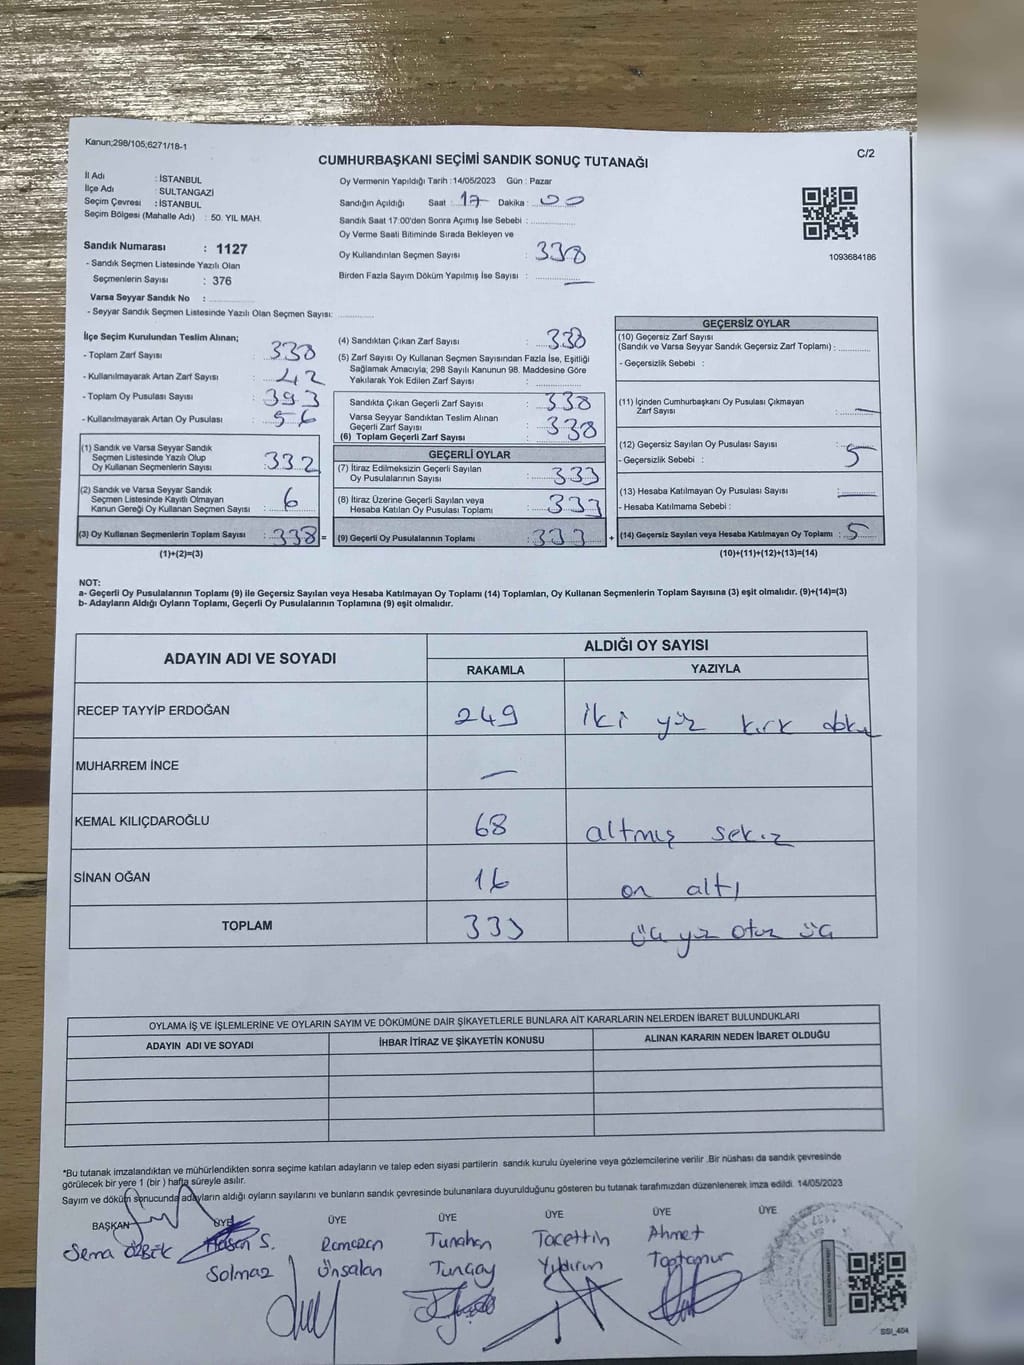 Kanun;298/105;6271/18-1
C/2
CUMHURBAŞKANI SEÇİMİ SANDIK SONUÇ TUTANAĞI
İl Adı : İSTANBUL
İlçe Adı : SULTANGAZİ
Seçim Çevresi : İSTANBUL
Seçim Bölgesi (Mahalle Adı) : 50. YIL MAH.
Sandık Numarası : 1127
- Sandık Seçmen Listesinde Yazılı Olan
Seçmenlerin Sayısı : 376
Varsa Seyyar Sandık No :
- Seyyar Sandık Seçmen Listesinde Yazılı Olan Seçmen Sayısı:
Oy Vermenin Yapıldığı Tarih :14/05/2023 Gün : Pazar
Sandığın Açıldığı Saat : 17 Dakika : 00
Sandık Saat 17:00'den Sonra Açımış İse Sebebi :
Oy Verme Saati Bitiminde Sırada Bekleyen ve
Oy Kullandırılan Seçmen Sayısı : 338
Birden Fazla Sayım Döküm Yapılmış İse Sayısı : —
1093684186
İlçe Seçim Kurulundan Teslim Alınan;
- Toplam Zarf Sayısı : 330
- Kullanılmayarak Artan Zarf Sayısı : 42
- Toplam Oy Pusulası Sayısı : 393
- Kullanılmayarak Artan Oy Pusulası : 56
(1) Sandık ve Varsa Seyyar Sandık
Seçmen Listesinde Yazılı Olup
Oy Kullanan Seçmenlerin Sayısı : 332
(2) Sandık ve Varsa Seyyar Sandık
Seçmen Listesinde Kayıtlı Olmayan
Kanun Gereği Oy Kullanan Seçmen Sayısı : 6
(3) Oy Kullanan Seçmenlerin Toplam Sayısı : 338 =
(1)+(2)=(3)
(4) Sandıktan Çıkan Zarf Sayısı : 338
(5) Zarf Sayısı Oy Kullanan Seçmen Sayısından Fazla İse, Eşitliği
Sağlamak Amacıyla; 298 Sayılı Kanunun 98. Maddesine Göre
Yakılarak Yok Edilen Zarf Sayısı :
Sandıkta Çıkan Geçerli Zarf Sayısı : 338
Varsa Seyyar Sandıktan Teslim Alınan
Geçerli Zarf Sayısı :
(6) Toplam Geçerli Zarf Sayısı : 338
GEÇERLİ OYLAR
(7) İtiraz Edilmeksizin Geçerli Sayılan
Oy Pusulalarının Sayısı : 333
(8) İtiraz Üzerine Geçerli Sayılan veya
Hesaba Katılan Oy Pusulası Toplamı : 333
(9) Geçerli Oy Pusulalarının Toplamı : 333 +
GEÇERSİZ OYLAR
(10) Geçersiz Zarf Sayısı
(Sandık ve Varsa Seyyar Sandık Geçersiz Zarf Toplamı) :
- Geçersizlik Sebebi :
(11) İçinden Cumhurbaşkanı Oy Pusulası Çıkmayan
Zarf Sayısı : —
(12) Geçersiz Sayılan Oy Pusulası Sayısı : 5
- Geçersizlik Sebebi :
(13) Hesaba Katılmayan Oy Pusulası Sayısı : —
- Hesaba Katılmama Sebebi :
(14) Geçersiz Sayılan veya Hesaba Katılmayan Oy Toplamı : 5
(10)+(11)+(12)+(13)=(14)
NOT:
a- Geçerli Oy Pusulalarının Toplamı (9) ile Geçersiz Sayılan veya Hesaba Katılmayan Oy Toplamı (14) Toplamları, Oy Kullanan Seçmenlerin Toplam Sayısına (3) eşit olmalıdır. (9)+(14)=(3)
b- Adayların Aldığı Oyların Toplamı, Geçerli Oy Pusulalarının Toplamına (9) eşit olmalıdır.
ADAYIN ADI VE SOYADI
ALDIĞI OY SAYISI
RAKAMLA YAZIYLA
RECEP TAYYİP ERDOĞAN 249 iki yüz kırk dokuz
MUHARREM İNCE —
KEMAL KILIÇDAROĞLU 68 altmış sekiz
SİNAN OĞAN 16 on altı
TOPLAM 333 üç yüz otuz üç
OYLAMA İŞ VE İŞLEMLERİNE VE OYLARIN SAYIM VE DÖKÜMÜNE DAİR ŞİKAYETLERLE BUNLARA AİT KARARLARIN NELERDEN İBARET BULUNDUKLARI
ADAYIN ADI VE SOYADI İHBAR İTİRAZ VE ŞİKAYETİN KONUSU ALINAN KARARIN NEDEN İBARET OLDUĞU
*Bu tutanak imzalandıktan ve mühürlendikten sonra seçime katılan adayların ve talep eden siyasi partilerin sandık kurulu üyelerine veya gözlemcilerine verilir .Bir nüshası da sandık çevresinde
görülecek bir yere 1 (bir ) hafta süreyle asılır.
Sayım ve döküm sonucunda adayların aldığı oyların sayılarını ve bunların sandık çevresinde bulunanlara duyurulduğunu gösteren bu tutanak tarafımızdan düzenlenerek imza edildi. 14/05/2023
BAŞKAN ÜYE ÜYE ÜYE ÜYE ÜYE ÜYE
Sema ÖZBEK
Hasan S. Solmaz
Ramazan Ünsalan
Tunahan Tungay
Tacettin Yıldırım
Ahmet Toptamur
SSI_404